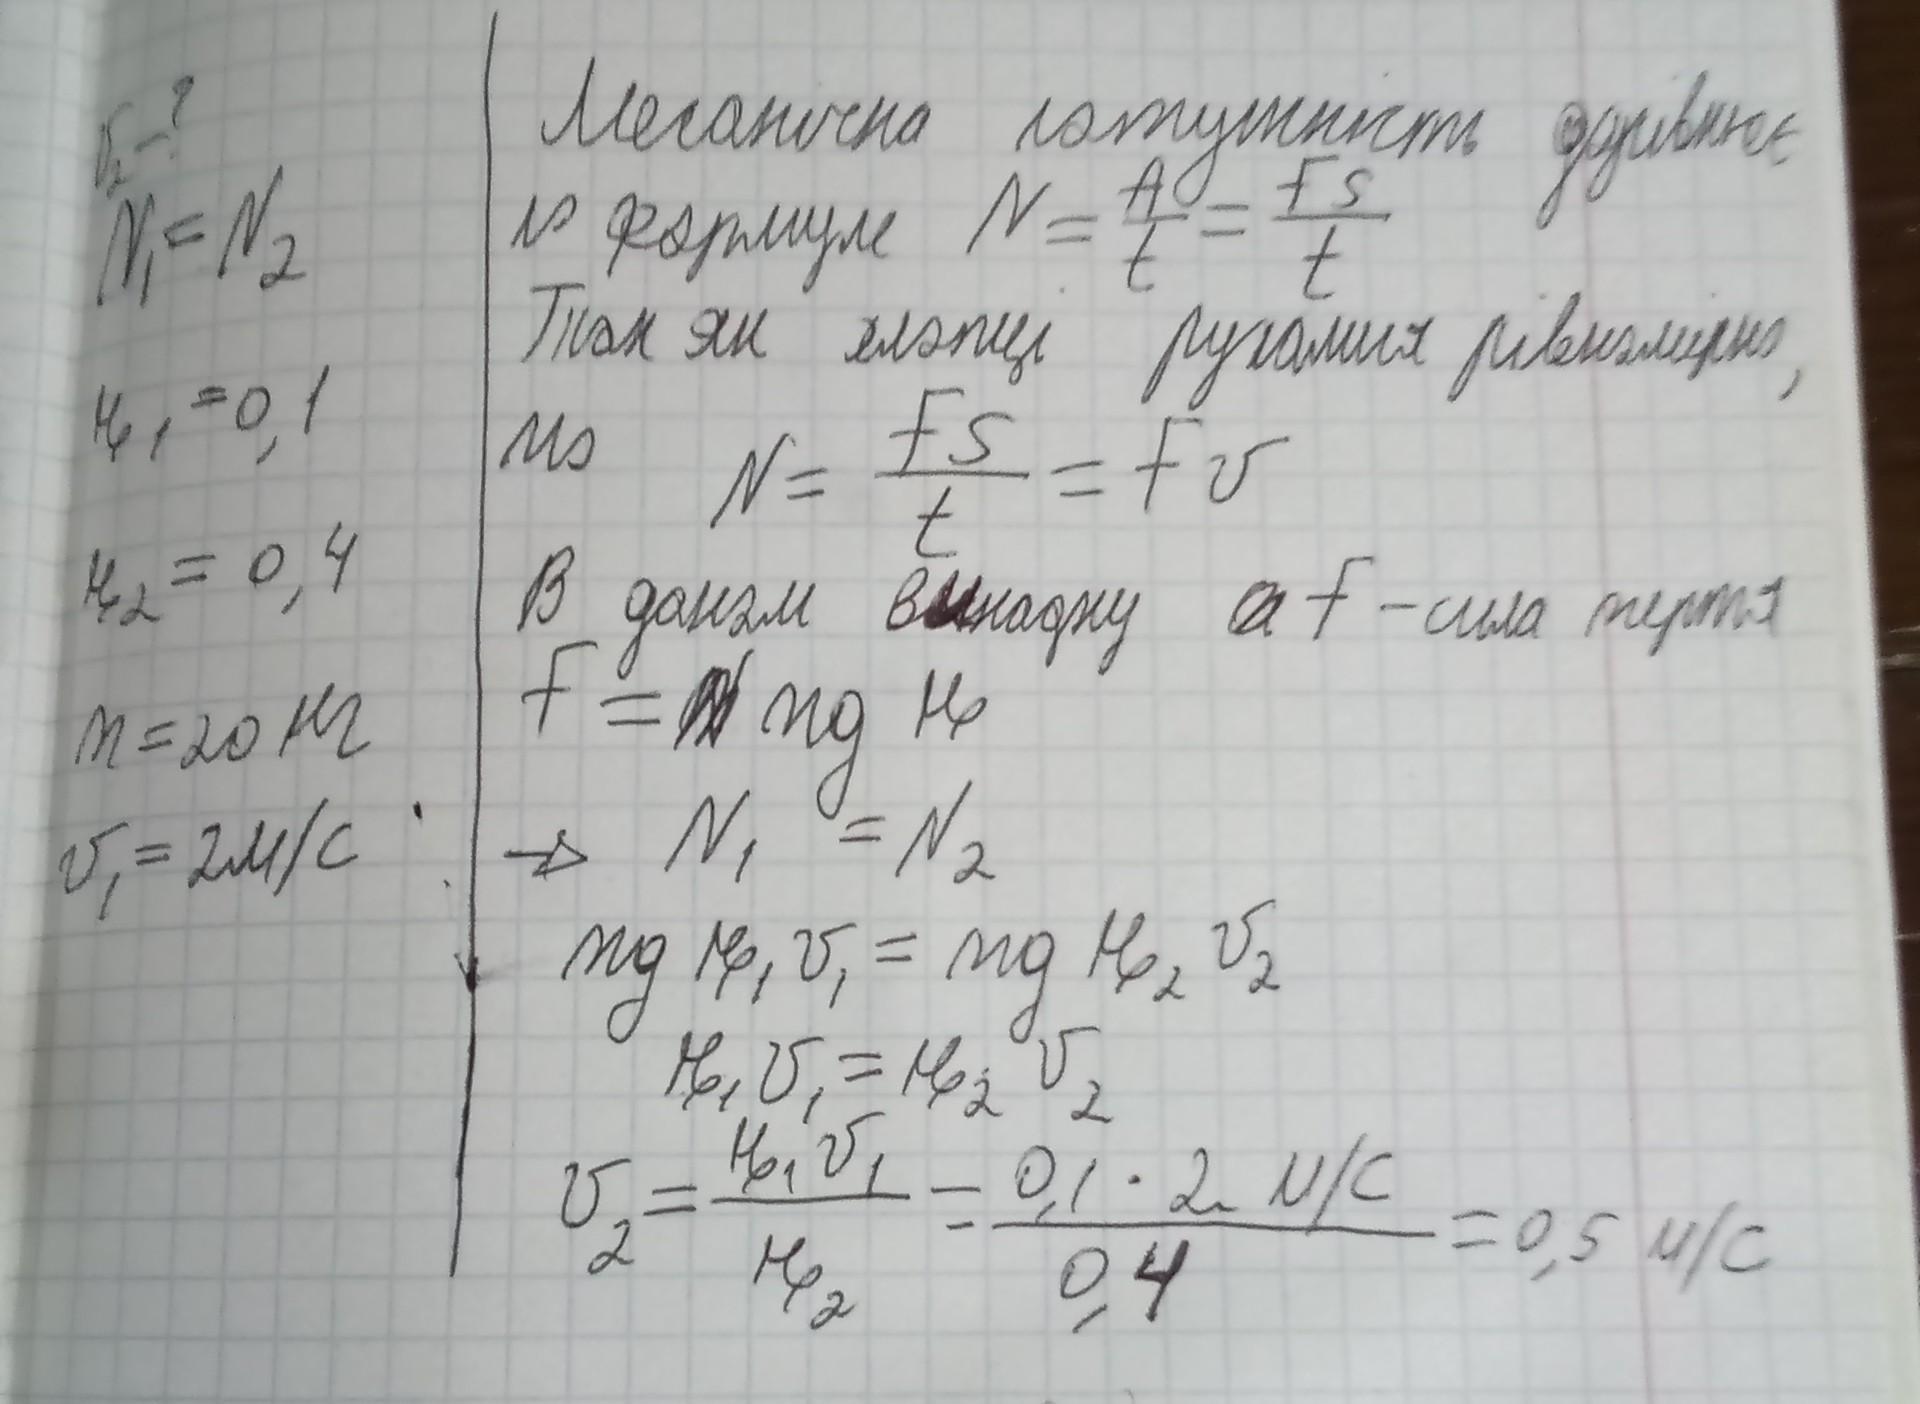 v₂-?
N₁ = N₂
μ₁ = 0,1
μ₂ = 0,4
m = 20 кг
v₁ = 2 м/с
Механична потужність дорівнює
по формуле N = A/t = FS/t
Так як хлопці рухалися рівномірно,
то N = FS/t = Fv
В даном випадку F - сила тертя
F = mg μ
→ N₁ = N₂
mg μ₁ v₁ = mg μ₂ v₂
μ₁ v₁ = μ₂ v₂
v₂ = μ₁ v₁ / μ₂ = 0,1 · 2 м/с / 0,4 = 0,5 м/с